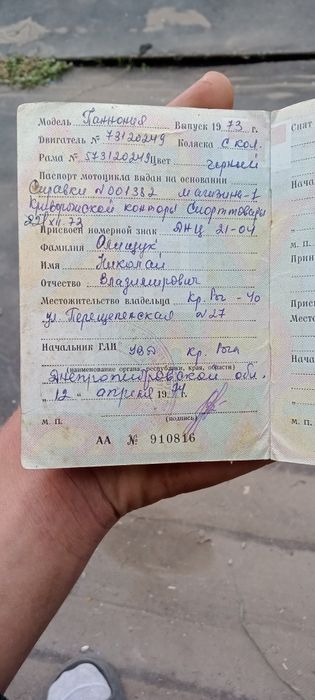 Модель Паннония Выпуск 1973 г.
Двигатель № 73120249 Коляска С кол.
Рама № 573120249 Цвет черный
Паспорт мотоцикла выдан на основании
Справки №001382 магазина-1
Криворожской конторы Спорттовары
22/XII 73
Присвоен номерной знак ДНЦ 21-04
Фамилия
Имя Николай
Отчество Владимирович
Местожительство владельца Кр. Рог-40
ул. Терещепенская №27
Начальник ГАИ УВД Кр. Рога
(наименование органа, республики, края, области)
Днепропетровской обл.
„12“ апреля 1974 г.
М. П. (подпись)
АА № 910816
Снят
Нача
М. П.
Прис
Место
Нача
М. П.